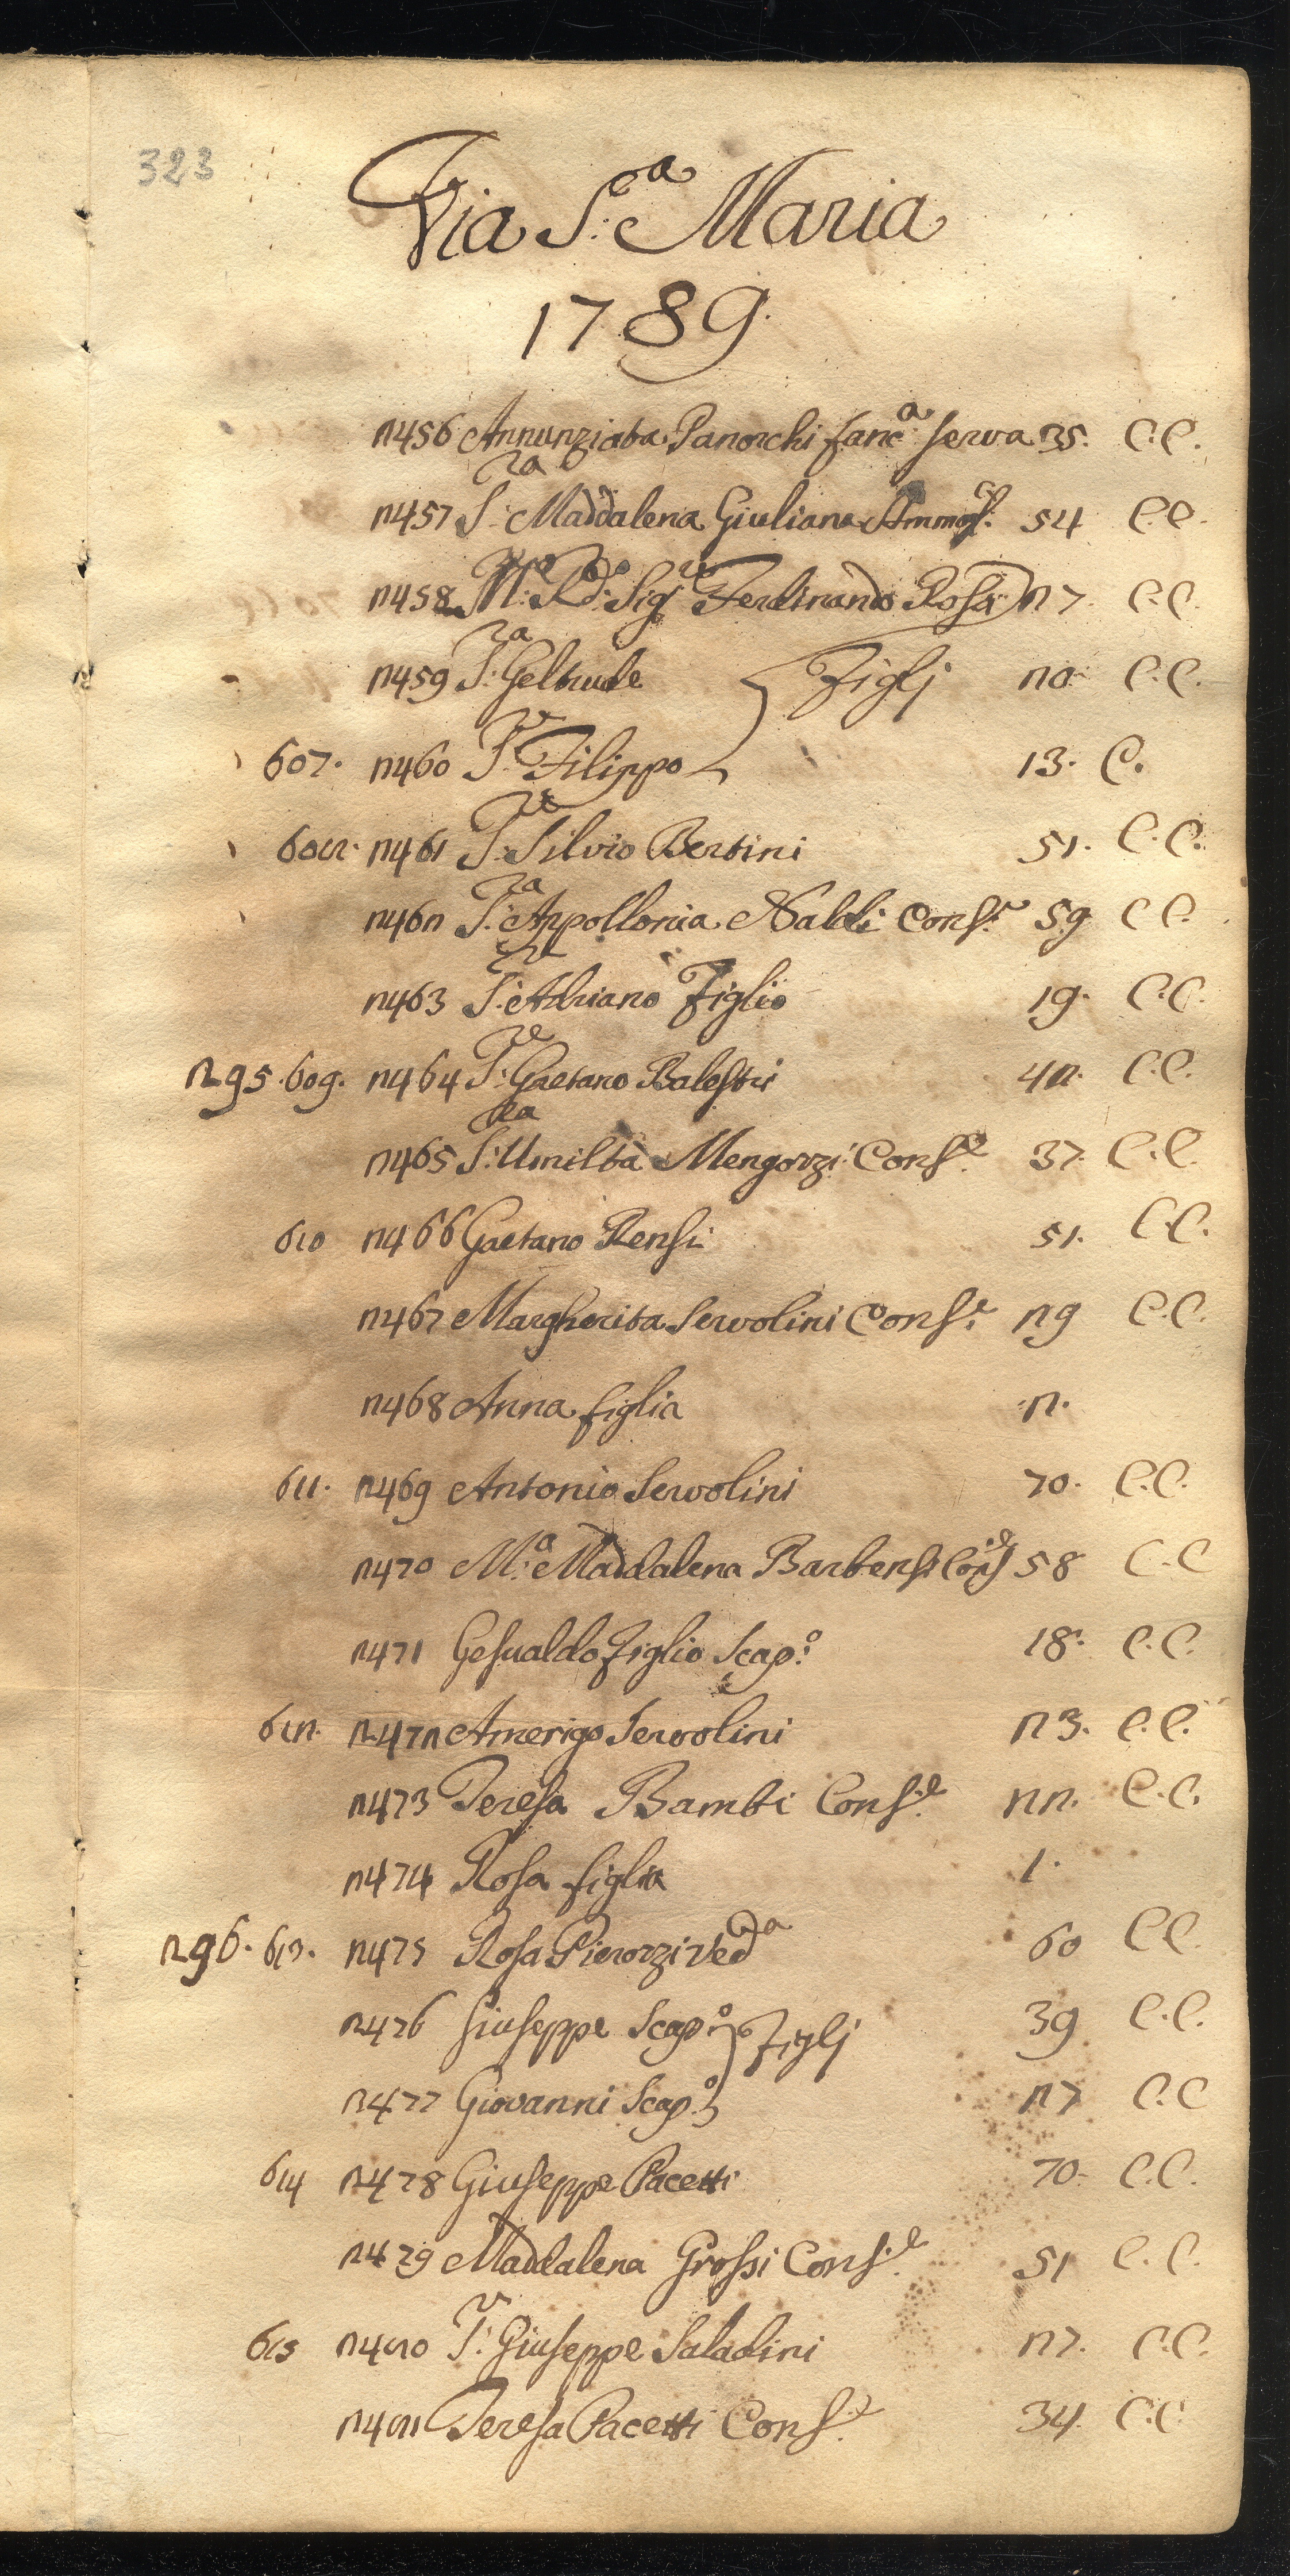 323
Via S.ª Maria
1789.
2456 Annunziata Panorchi fanc.ª serva 35. C.C.
2457 S.ra Maddalena Giuliana Amm. 54 C.C.
2458 M.o R.do Sig.re Ferdinando Rosa 27. C.C.
2459 S.ra Geltrude } Figlj 20. C.C.
607. 2460 S.re Filippo 13. C.
608. 2461 S.re Silvio Bertini 51. C.C.
2462 S.ra Appollonia Naldi Cons.e 59 C C.
2463 S.re Adriano Figlio 19. C.C.
295. 609. 2464 S.re Gaetano Balestri 42. C.C.
2465 S.ra Umiltà Mengozzi Cons.e 37. C.C.
610 2466 Gaetano Rensi 51. C.C.
2467 Margherita Servolini Cons.e 29 C.C.
2468 Anna figlia 2.
611. 2469 Antonio Servolini 70. C.C.
2470 M.ª Maddalena Barbensi Cons.e 58 C.C
2471 Gesualdo Figlio Scap.o 18. C.C.
612. 2472 Amerigo Servolini 23. C.C.
2473 Teresa Bambi Cons.e 22. C.C.
2474 Rosa figlia 1.
296. 613. 2475 Rosa Pierozzi Ved.a 60 C C.
2476 Giuseppe Scap.o } Figlj 39 C.C.
2477 Giovanni Scap.o 27 C.C
614 2478 Giuseppe Pacetti 70. C.C.
2479 Maddalena Grossi Cons.e 51 C.C.
615 2480 S.r Giuseppe Saladini 27. C.C.
2481 Teresa Pacetti Cons.e 34. C.C.